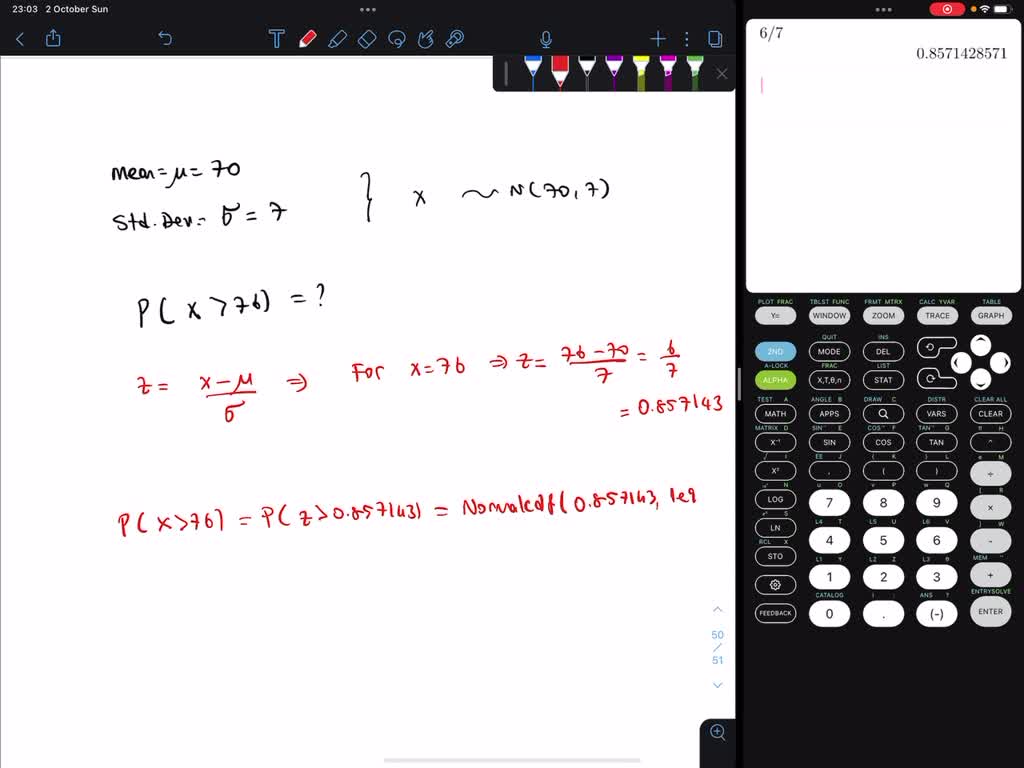 23:03 2 October Sun
6/7
0.8571428571
mean = μ = 70
Std. Dev = σ = 7
} X ~ N(70, 7)
P(X > 76) = ?
z = x - μ / σ ⇒ For x = 76 ⇒ z = 76 - 70 / 7 = 6 / 7
= 0.857143
P(X > 76) = P(z > 0.857143) = Normalcdf(0.857143, 1e9
50
/
51
PLOT FRAC TBLST FUNC FRMT MTRX CALC YVAR TABLE
Y= WINDOW ZOOM TRACE GRAPH
QUIT INS
2ND MODE DEL
A-LOCK FRAC LIST
ALPHA X,T,θ,n STAT
TEST A ANGLE B DRAW C DISTR CLEAR ALL
MATH APPS VARS CLEAR
MATRIX D SIN⁻¹ E COS⁻¹ F TAN⁻¹ G π H
X⁻¹ SIN COS TAN ^
EE J { K } L e M
X² , ( ) ÷
N u O v P w Q [ R
LOG 7 8 9 ×
S L4 T L5 U L6 V ] W
LN 4 5 6 -
RCL X L1 Y L2 Z L3 θ MEM "
STO 1 2 3 +
CATALOG i : ANS ? ENTRYSOLVE
FEEDBACK 0 . (-) ENTER